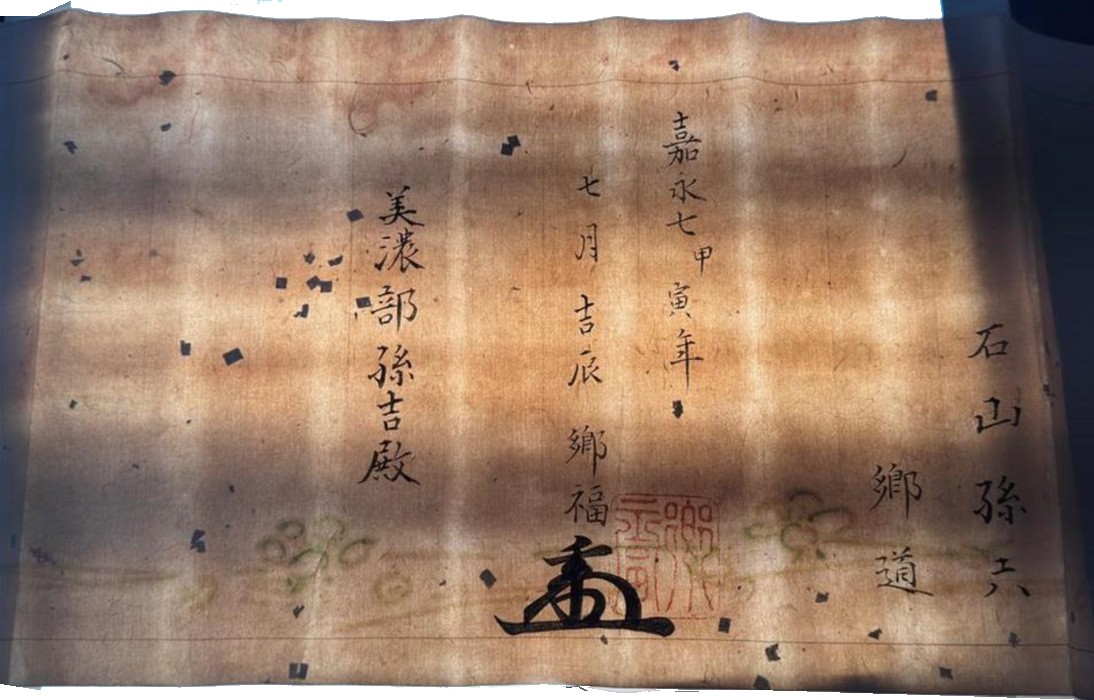 石山孫六
郷道
嘉永七甲寅年
七月吉辰 郷福
美濃部孫吉殿